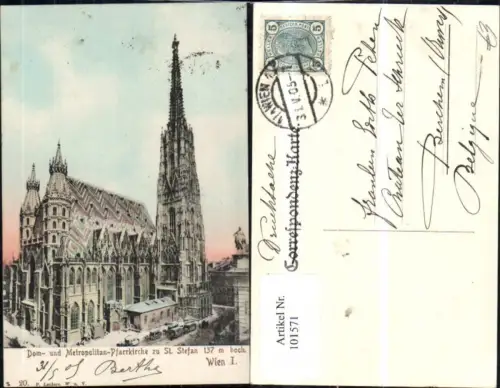 Dom- und Metropolitan-Pfarrkirche zu St. Stefan 137 m hoch.
Wien I.
31/5 05 Bertha
20.
5 5
1/1 WIEN
31.V.05
Correspondenz-Karte
Drucksache
Fräulein
Berchem / Anvers
Belgique
Artikel Nr.
101571